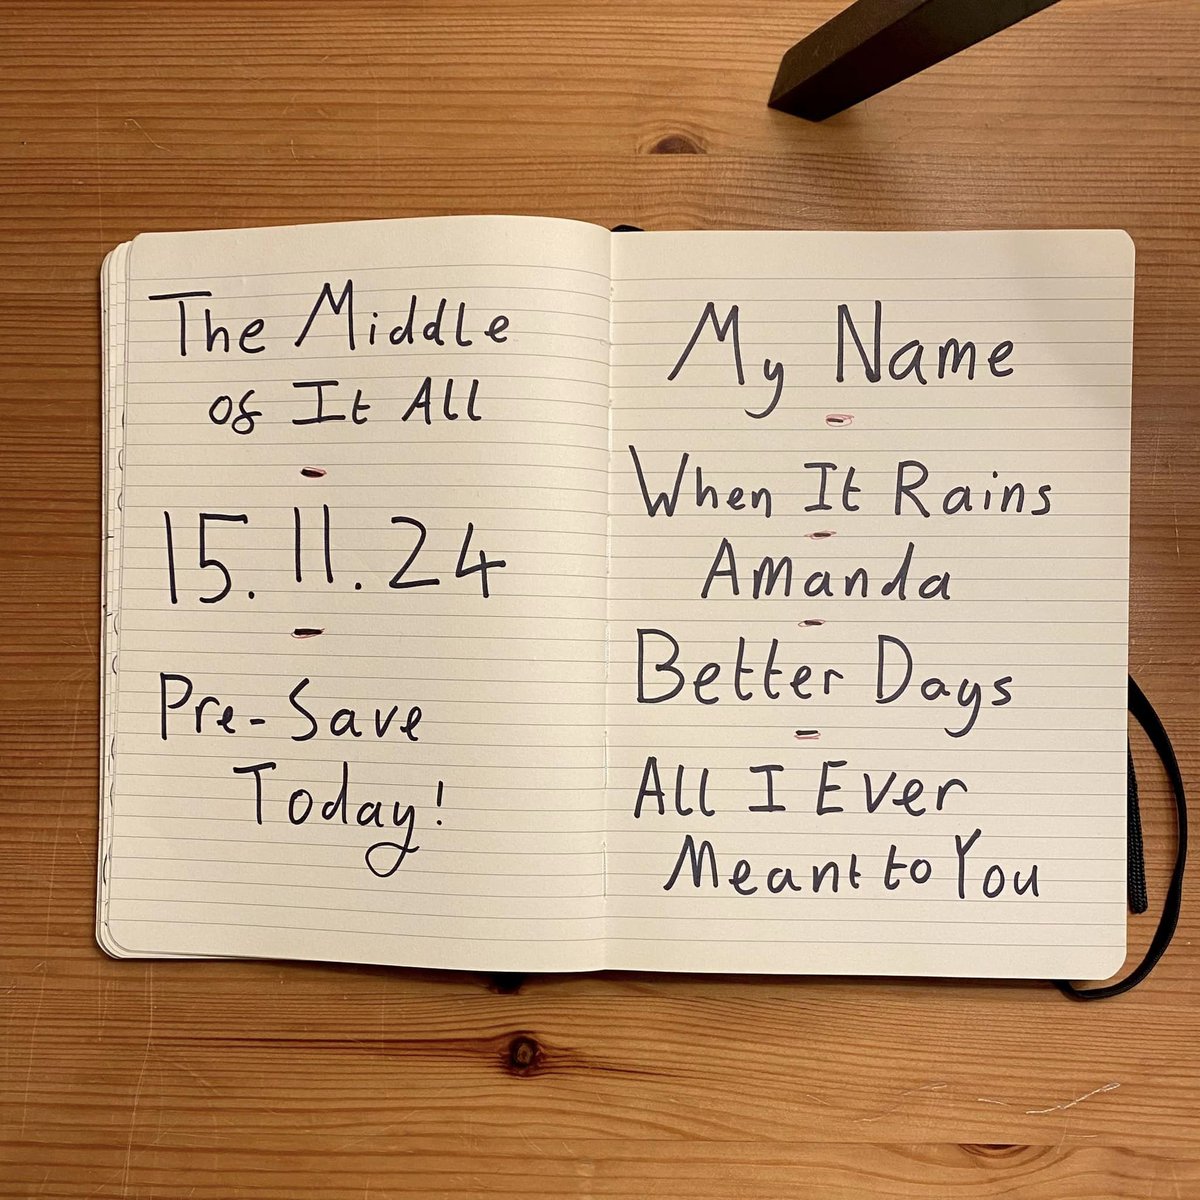 The Middle
of It All
-
15.11.24
-
Pre-Save
Today!
My Name
-
When It Rains
-
Amanda
-
Better Days
-
All I Ever
Meant to You